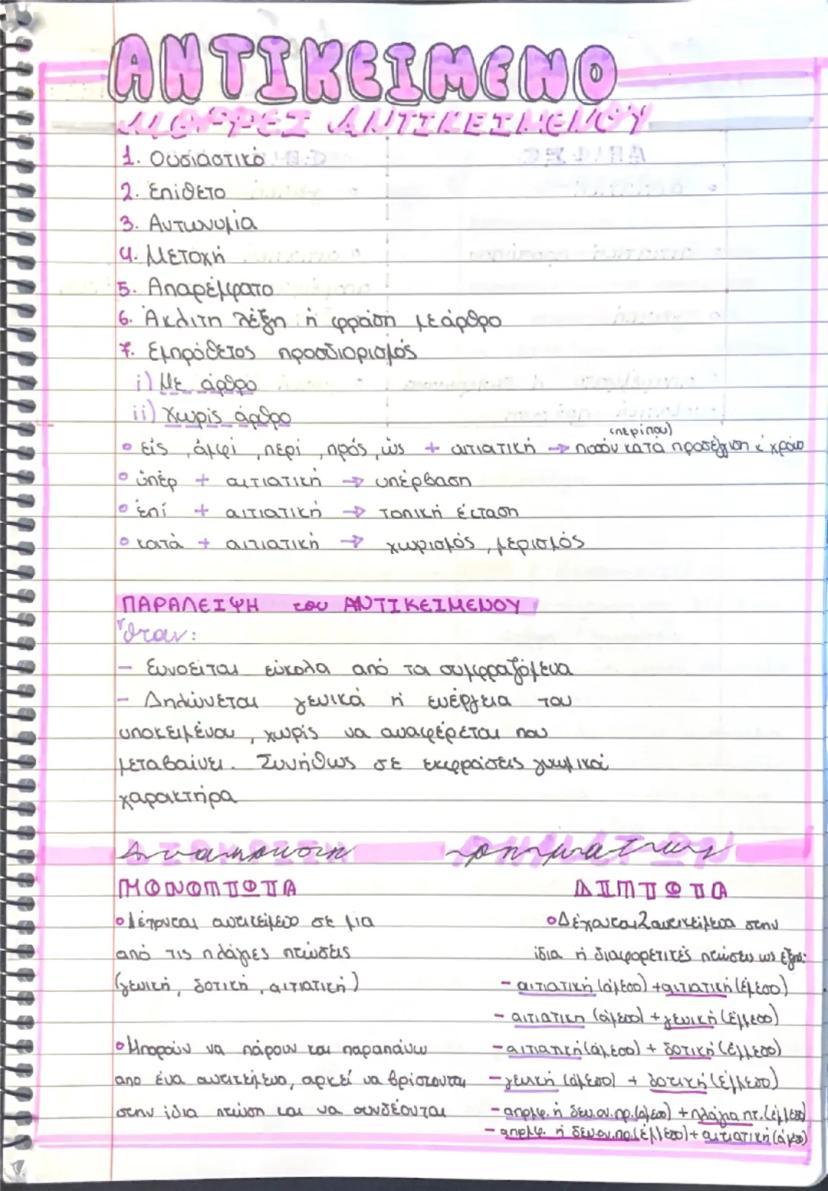 ΑΝΤΙΚΕΙΜΕΝΟ
ΜΟΡΦΕΣ ΑΝΤΙΚΕΙΜΕΝΟΥ
1. Ουσιαστικό
2. Επίθετο
3. Αντωνυμία
4. Μετοχή
5. Απαρέμφατο
6. Άκλιτη λέξη ή φράση με άρθρο
7. Εμπρόθετος προσδιορισμός
i) Με άρθρο
ii) Χωρίς άρθρο
(περίπου)
• εἰς, ἀμφί, περί, πρός, ὡς + αιτιατική → ποσόν κατά προσέγγιση ἤ χρόνο
• ὑπέρ + αιτιατική → υπέρβαση
• ἐπί + αιτιατική → τοπική έκταση
• κατά + αιτιατική → χωρισμός, μερισμός
ΠΑΡΑΛΕΙΨΗ του ΑΝΤΙΚΕΙΜΕΝΟΥ
Όταν:
- Εννοείται εύκολα από τα συμφραζόμενα
- Δηλώνεται γενικά η ενέργεια του
υποκειμένου, χωρίς να αναφέρεται που
μεταβαίνει. Συνήθως σε εκφράσεις γνωμικού
χαρακτήρα
Αναγνώριση ρημάτων
ΜΟΝΟΠΤΩΤΑ ΔΙΠΤΩΤΑ
• Δέχονται αντικείμενο σε μια • Δέχονται 2 αντικείμενα στην
από τις πλάγιες πτώσεις ίδια ή διαφορετικές πτώσεις ως εξής:
(γενική, δοτική, αιτιατική) - αιτιατική (άμεσο) + αιτιατική (έμμεσο)
- αιτιατική (άμεσο) + γενική (έμμεσο)
• Μπορούν να πάρουν και παραπάνω - αιτιατική (άμεσο) + δοτική (έμμεσο)
από ένα αντικείμενο, αρκεί να βρίσκονται - γενική (άμεσο) + δοτική (έμμεσο)
στην ίδια πτώση και να συνδέονται - απρμφ. ή δευ.ον.πρ. (άμεσο) + πλάγια πτ. (έμμεσο)
- απρμφ. ή δευ.ον.πρ. (έμμεσο) + αιτιατική (άμεσο)